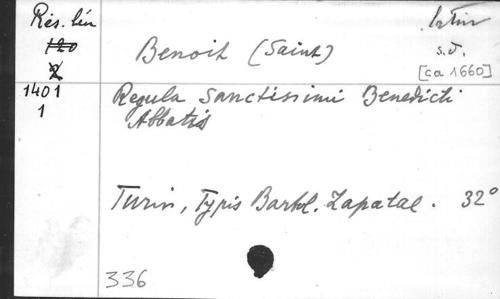 Rés. lín
120
2
1401
1
Benoit (Saint)
latin
s.d.
[ca 1660]
Regula Sanctissimi Benedicti
Abbatis
Turin, Typis Barthol. Zapatae. 32°
336